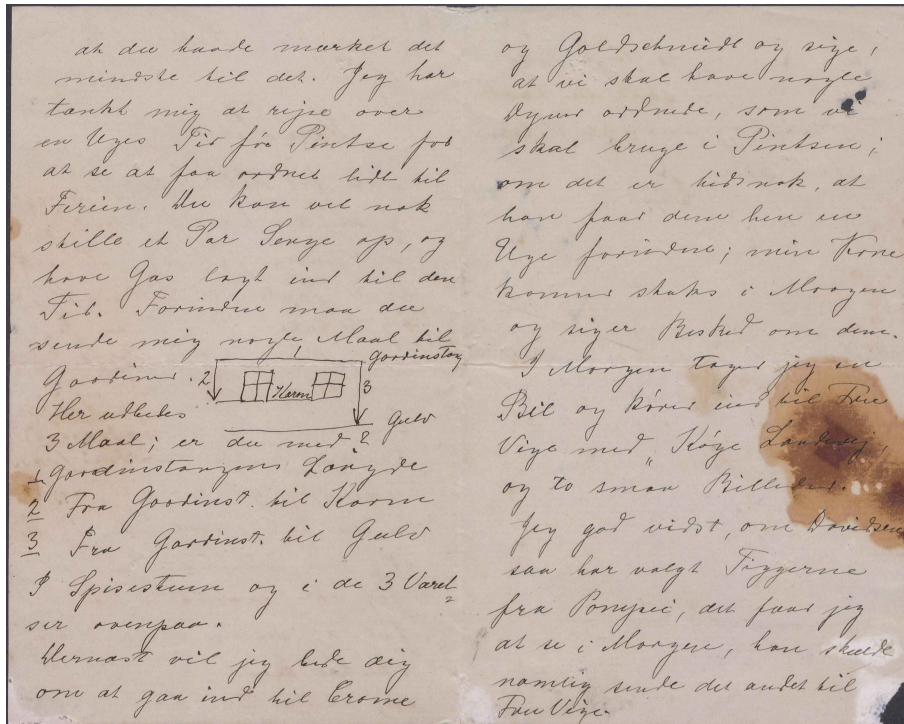 at du havde mærket det
mindste til det. Jeg har
tænkt mig at rejse over
en Uges Tid før Pintse for
at se at faa ordnet lidt til
Ferien. Du kan vel nok
stille et Par Senge op, og
have Gas lagt ind til den
Tid. Forinden maa du
sende mig nogle Maal til
Gardiner.
2
Karm
3
Gardinstang
Gulv
Her udbedes
3 Maal; er du med?
1 Gardinstangens Længde
2 Fra Gardinst. til Karm
3 Fra Gardinst. til Gulv
I Spisestuen og i de 3 Værel-
ser ovenpaa.
Dernæst vil jeg bede dig
om at gaa ind til Crome
og Goldschmidt og sige,
at vi skal have nogle
Dyner ordnede, som vi
skal bruge i Pintsen;
om det er tidsnok, at
han faar dem hen en
Uge forinden; min Kone
kommer straks i Morgen
og siger Besked om dem.
I Morgen tager jeg en
Bil og kører ind til Fru
Vige med "Køge Landevej,
og to smaa Billeder.
Jeg gad vidst, om Davidsen
saa har valgt Tiggerne
fra Pompei, det faar jeg
at se i Morgen, han skulde
nemlig sende det andet til
Fru Vige.